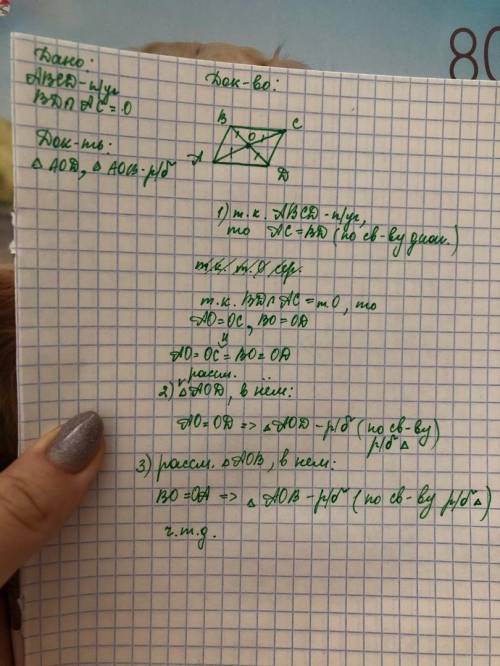 80
Дано:
ABCD - п/уг
BD∩AC = O
Док-ть:
△AOD, △AOB - р/б
Док-во:
B
C
O
A
D
1) т.к. ABCD - п/уг,
то AC = BD (по св-ву диаг.)
т.к. BD∩AC = т.O, то
AO = OC, BO = OD
и
AO = OC = BO = OD
рассм.
2) △AOD, в нём:
AO = OD => △AOD - р/б (по св-ву
р/б △)
3) рассм. △AOB, в нём:
BO = OA => △AOB - р/б (по св-ву р/б △)
ч.т.д.